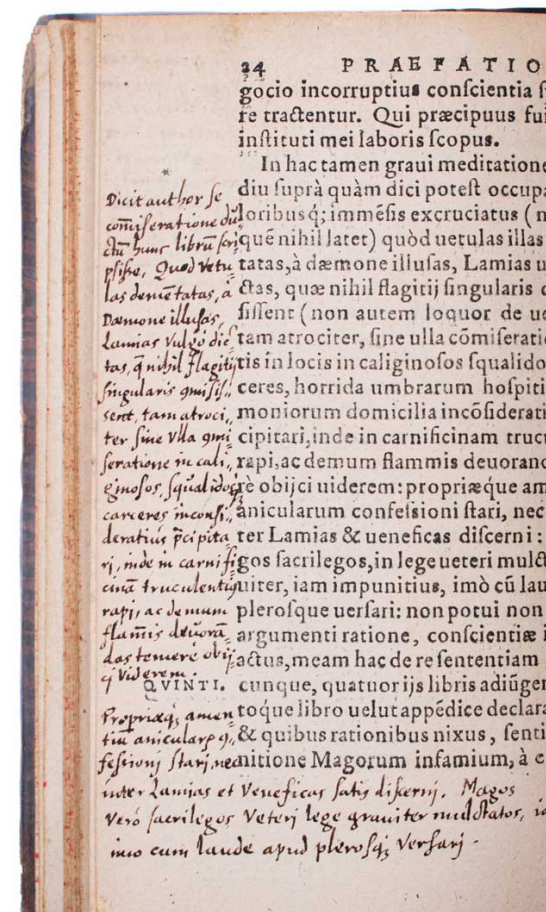 24 PRAEFATIO
gocio incorruptius conſcientia ſ
re tractentur. Qui præcipuus fui
inſtituti mei laboris ſcopus.
In hac tamen graui meditatione
diu ſuprà quàm dici poteſt occupa
loribusq́; immẽſis excruciatus (n
quẽ nihil latet) quòd uetulas illas
tatas, à dæmone illuſas, Lamias u
ctas, quæ nihil flagitij ſingularis c
ſiſſent (non autem loquor de ue
tam atrociter, ſine ulla cõmiſeratio
tis in locis in caliginoſos ſqualido
ceres, horrida umbrarum hoſpiti
moniorum domicilia incõſiderati
cipitari, inde in carnificinam truc
rapi, ac demum flammis deuoranc
rè obijci uiderem: propriæque am
anicularum confeſsioni ſtari, nec
ter Lamias & ueneficas diſcerni:
gos ſacrilegos, in lege ueteri mulct
uiter, iam impunitius, imò cũ lau
pleroſque uerſari: non potui non
argumenti ratione, conſcientiæ i
actus, meam hac de re ſententiam
QVINTI. cunque, quatuor ijs libris adiũger
toque libro uelut appẽdice declara
& quibus rationibus nixus, ſenti
nitione Magorum infamium, à c
Dicit author ſe
com̃iſeratione du
ctũ hunc librũ ſcri
pſiſſe, Quod Vetu
las demẽtatas, à
Dæmone illuſas,
Lamias Vulgò dic
tas, q̃ nihil flagitij
ſingularis 9miſiſ
ſent, tam atroci
ter ſine Vlla 9mi
ſeratione in cali
ginoſos, ſqualidoſq;
carceres inconſi
deratius p̃cipita
rj, inde in carnifi
cinã truculentiq
rapi, ac demum
flam̃is deuorã
das temerè obij
cj Viderem.
Propriæq; amen
tiũ anicularũ 9
feſsionj ſtarj, nec
inter Lamias et Veneficas ſatis diſcernj. Magos
Verò ſacrilegos Veterj lege grauiter mulctatos,
imo cum laude apud pleroſq; Verſarj.